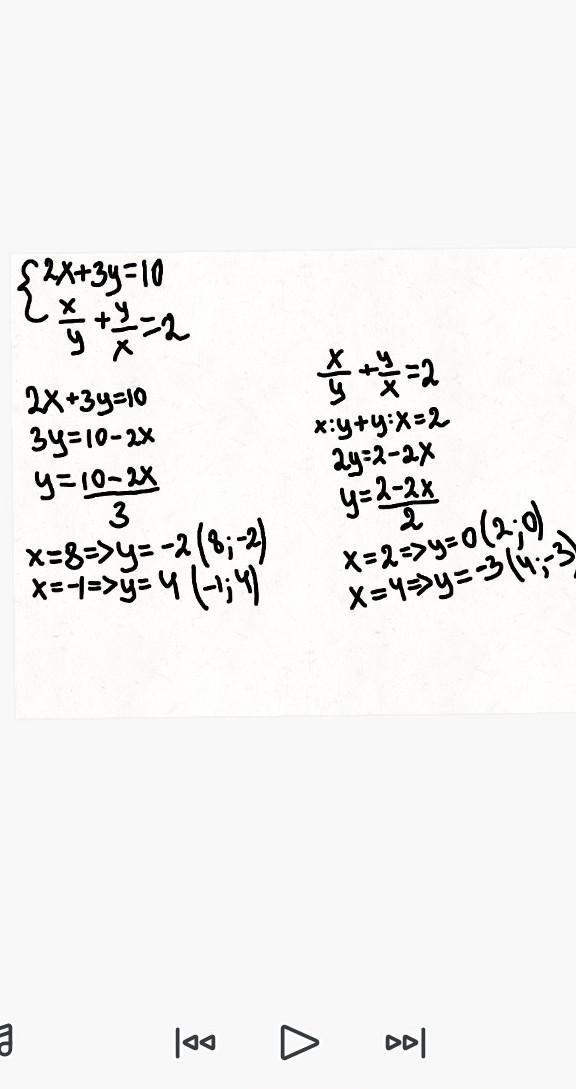 {2x+3y=10
x/y+y/x=2
2x+3y=10
3y=10-2x
y=10-2x/3
x=8=>y=-2(8;-2)
x=-1=>y=4(-1;4)
x/y+y/x=2
x:y+y:x=2
2y=2-2x
y=2-2x/2
x=2=>y=0(2;0)
x=4=>y=-3(4;-3)